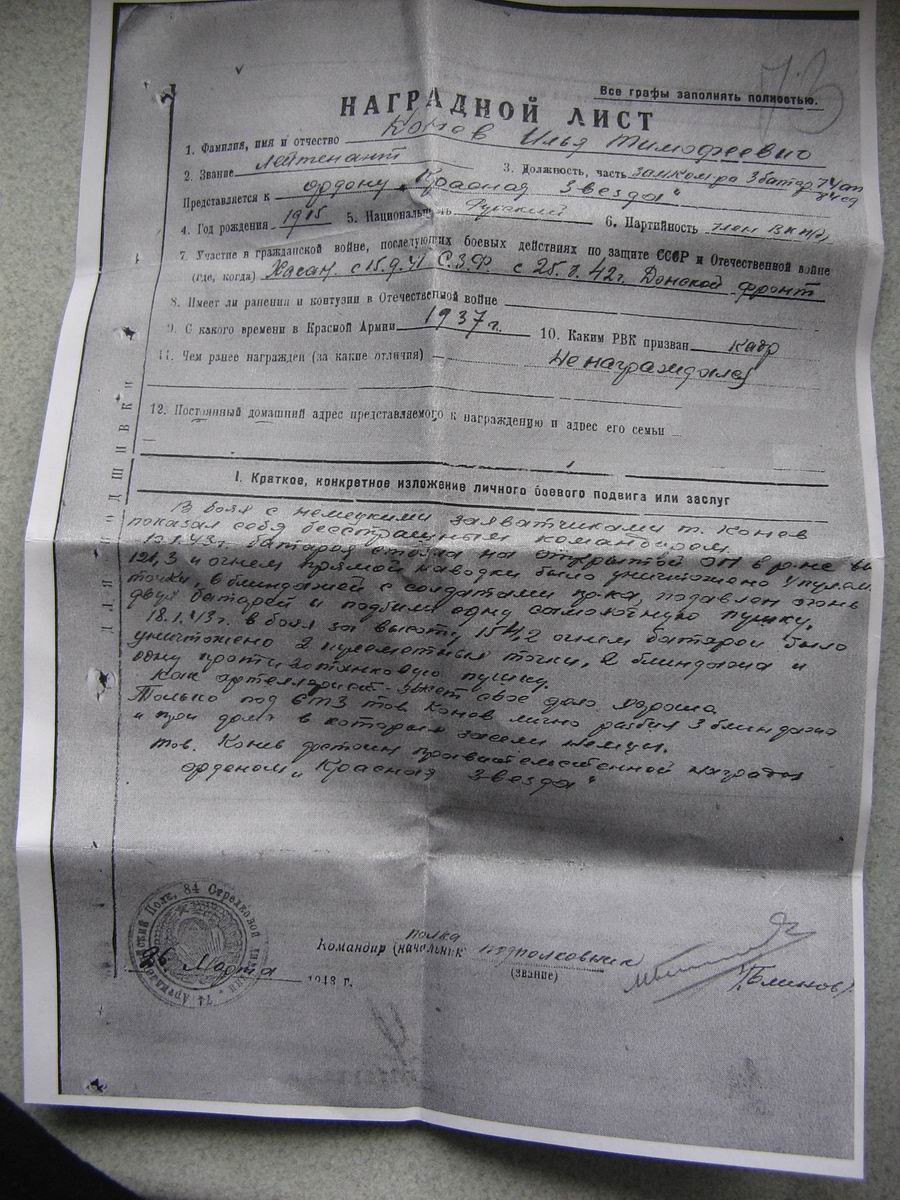 Все графы заполнять полностью.
НАГРАДНОЙ ЛИСТ
1. Фамилия, имя и отчество Конов Илья Тимофеевич
2. Звание Лейтенант 3. Должность, часть замком-ра 3 батар 74 ап
84 сд
Представляется к ордену "Красная Звезда"
4. Год рождения 1915 5. Национальность Русский 6. Партийность член ВКП(б)
7. Участие в гражданской войне, последующих боевых действиях по защите СССР и Отечественной войне
(где, когда) Хасан. с 15.9.41 С.З.Ф. с 25. .42г. Донской фронт
8. Имеет ли ранения и контузии в Отечественной войне
9. С какого времени в Красной Армии 1937 г. 10. Каким РВК призван кадр
11. Чем ранее награжден (за какие отличия) Не награждался
12. Постоянный домашний адрес представляемого к награждению и адрес его семьи
ДЛЯ ПОДШИВКИ
I. Краткое, конкретное изложение личного боевого подвига или заслуг
В боях с немецкими захватчиками т. Конев
показал себя бесстрашным командиром.
1.43г. батарея стояла на открытой ОП в р-не вы
121,3 и огнем прямой наводки было уничтожено 4 пулем.
точки, блиндажей с солдатами пр-ка, подавлен огонь
двух батарей и подбили одну самоходную пушку.
18.1.43г. в боях за высоту 154,2 огнем батареи было
уничтожено 2 пулеметные точки, 2 блиндажа и
одну противотанковую пушку.
Как артеллерист знает свое дело хорошо.
Только под СТЗ тов. Конов лично разбил 3 блиндажа
и три дома в которых засели немцы.
тов. Конев достоин правительственной награды
орденом "Красная Звезда"
74 Артиллерийский Полк, 84 Стрелковой Дивизии
полка
Командир (начальник подполковник
(звание)
/Блинов/
26 Марта 1943 г.